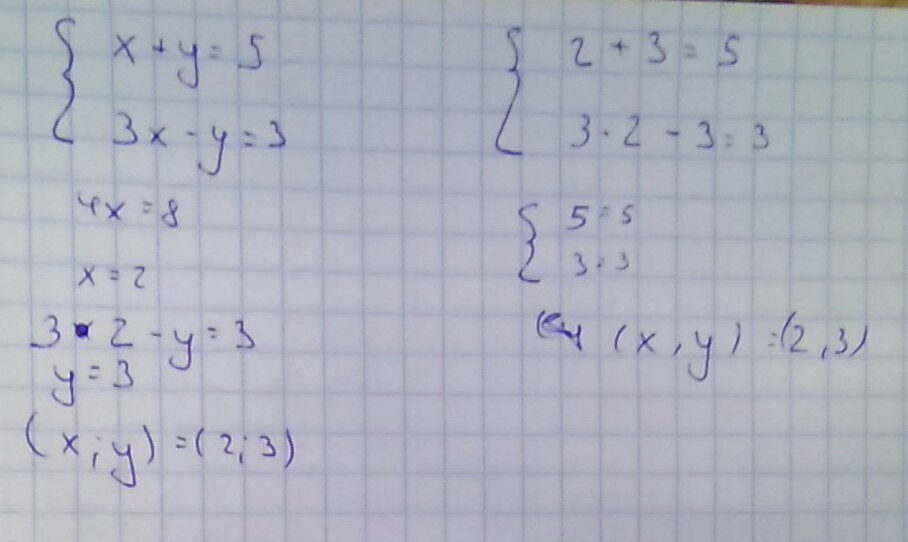 x + y = 5
3x - y = 3
4x = 8
x = 2
3 · 2 - y = 3
y = 3
(x; y) = (2; 3)
2 + 3 = 5
3 · 2 - 3 = 3
5 = 5
3 = 3
(x, y) = (2, 3)